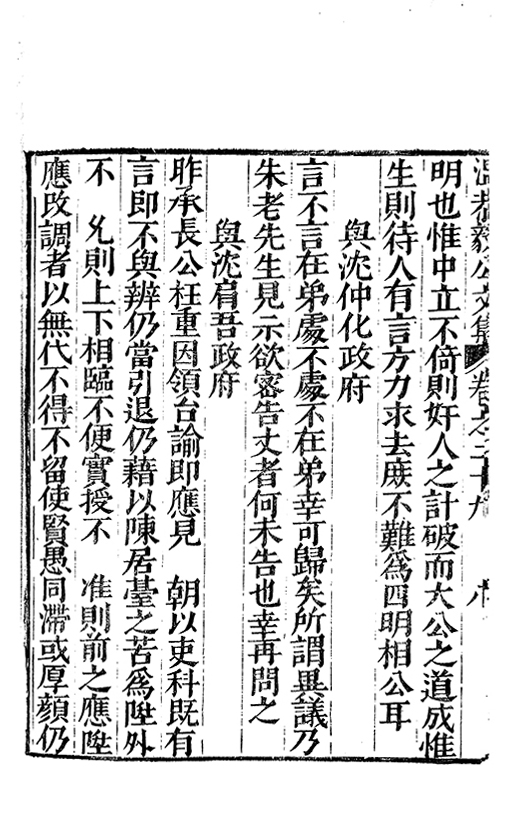 溫恭毅公文集 卷之二十九 八
明也惟中立不倚則奸人之計破而大公之道成惟
生則待人有言方力求去庶不難為四明相公耳
與沈仲化政府
言不言在弟處不處不在弟幸可歸矣所謂異議乃
朱老先生見示欲密告丈者何未告也幸再問之
與沈肩吾政府
昨承長公枉重因領台諭即應見 朝以吏科既有
言即不與辨仍當引退仍藉以陳居臺之苦為陞外
不 允則上下相臨不便實授不 准則前之應陞
應改調者以無代不得不留使賢愚同滯或厚顏仍